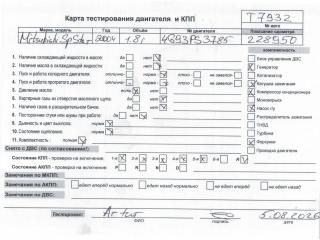 Карта тестирования двигателя и КПП
T7932
№ авто
Марка, модель
Год
Объём
№ двигателя
Показания одометра
Mitsubishi Sp Star 2004 1.8i 4G93PS3785 228950
1. Наличие охлаждающей жидкости в масле да нет
2. Наличие масла в охлаждающей жидкости да нет
3. Пуск и работа холодного двигателя отлично норма плохо не завелся
4. Пуск и работа прогретого двигателя отлично норма плохо не завелся
5. Давление масла есть нет
6. Картерные газы из отверстия маслозал. щупа: да норма нет
7. Наличие газов в расширительном бачке: да нет
8. Посторонние стуки или шумы при работе да нет
9. Дымность и цвет выхлопа: норма
10. Состояние сцепления: норма
11. Комплектность: полная
комплектность
Блок управления ДВС
Генератор
Стартер
Компрессор кондиционера
Моновпрыск
Насос г/у
Распределитель зажигания
ТНВД
Турбина
Форсунки
Проводка двигателя
Снято с ДВС (по согласованию!):
Состояние КПП - проверка на включение: 1-я 2-я 3-я 4-я 5-я
Состояние АКПП - проверка на включение: P R N D
Замечания по МКПП:
Замечания по АКПП: едет вперёд нормально едет назад нормально не едет вперёд не едет назад
Замечания по ДВС:
Тестировал: Artur 5.08.2026
ФИО подпись дата